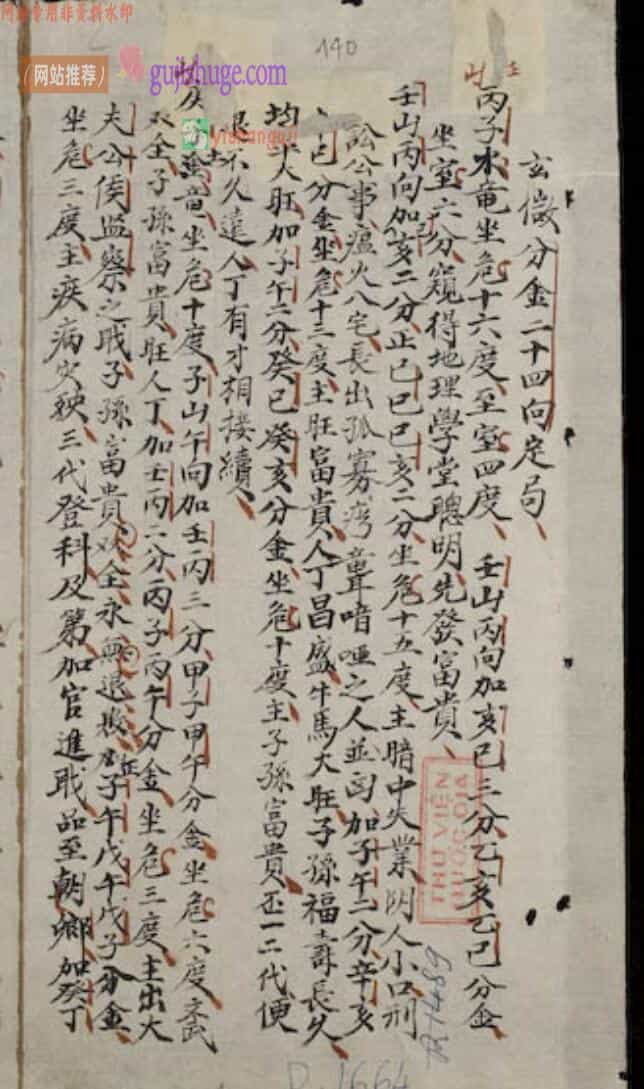 140
玄微分金二十四向定局
丙子水竜坐危十六度至室四度壬山丙向加亥巳三分乙亥乙巳分金
坐室六分窺得地理學堂聰明先發富貴
壬山丙向加亥二分止己巳己亥二分坐危十五度主暗中失業阴人小口刑
訟公事瘟火八宅長出孤寡聾喑啞之人並凶加子午二分辛亥
巳分金坐危十三度主旺富貴人丁昌盛牛馬大旺子孫福壽長久
均平大旺加子午二分癸巳癸亥分金坐危十度主子孫富貴一二代便
退不久遠人丁有才相接續
竜坐危十度子山午向加壬丙三分甲子甲午分金坐危六度主武
双全子孫富貴旺人丁加壬丙二分丙子丙午分金坐危三度主出大
夫公侯监察之职子孫富貴双全永無退敗子午戊午戊子分金
坐危三度主疾病灾殃三代登科及第加官進职品至朝鄉加癸丁
THƯ VIỆN
QUỐC GIA
R.1489
R.1664
（网站推荐）
gujishuge.com